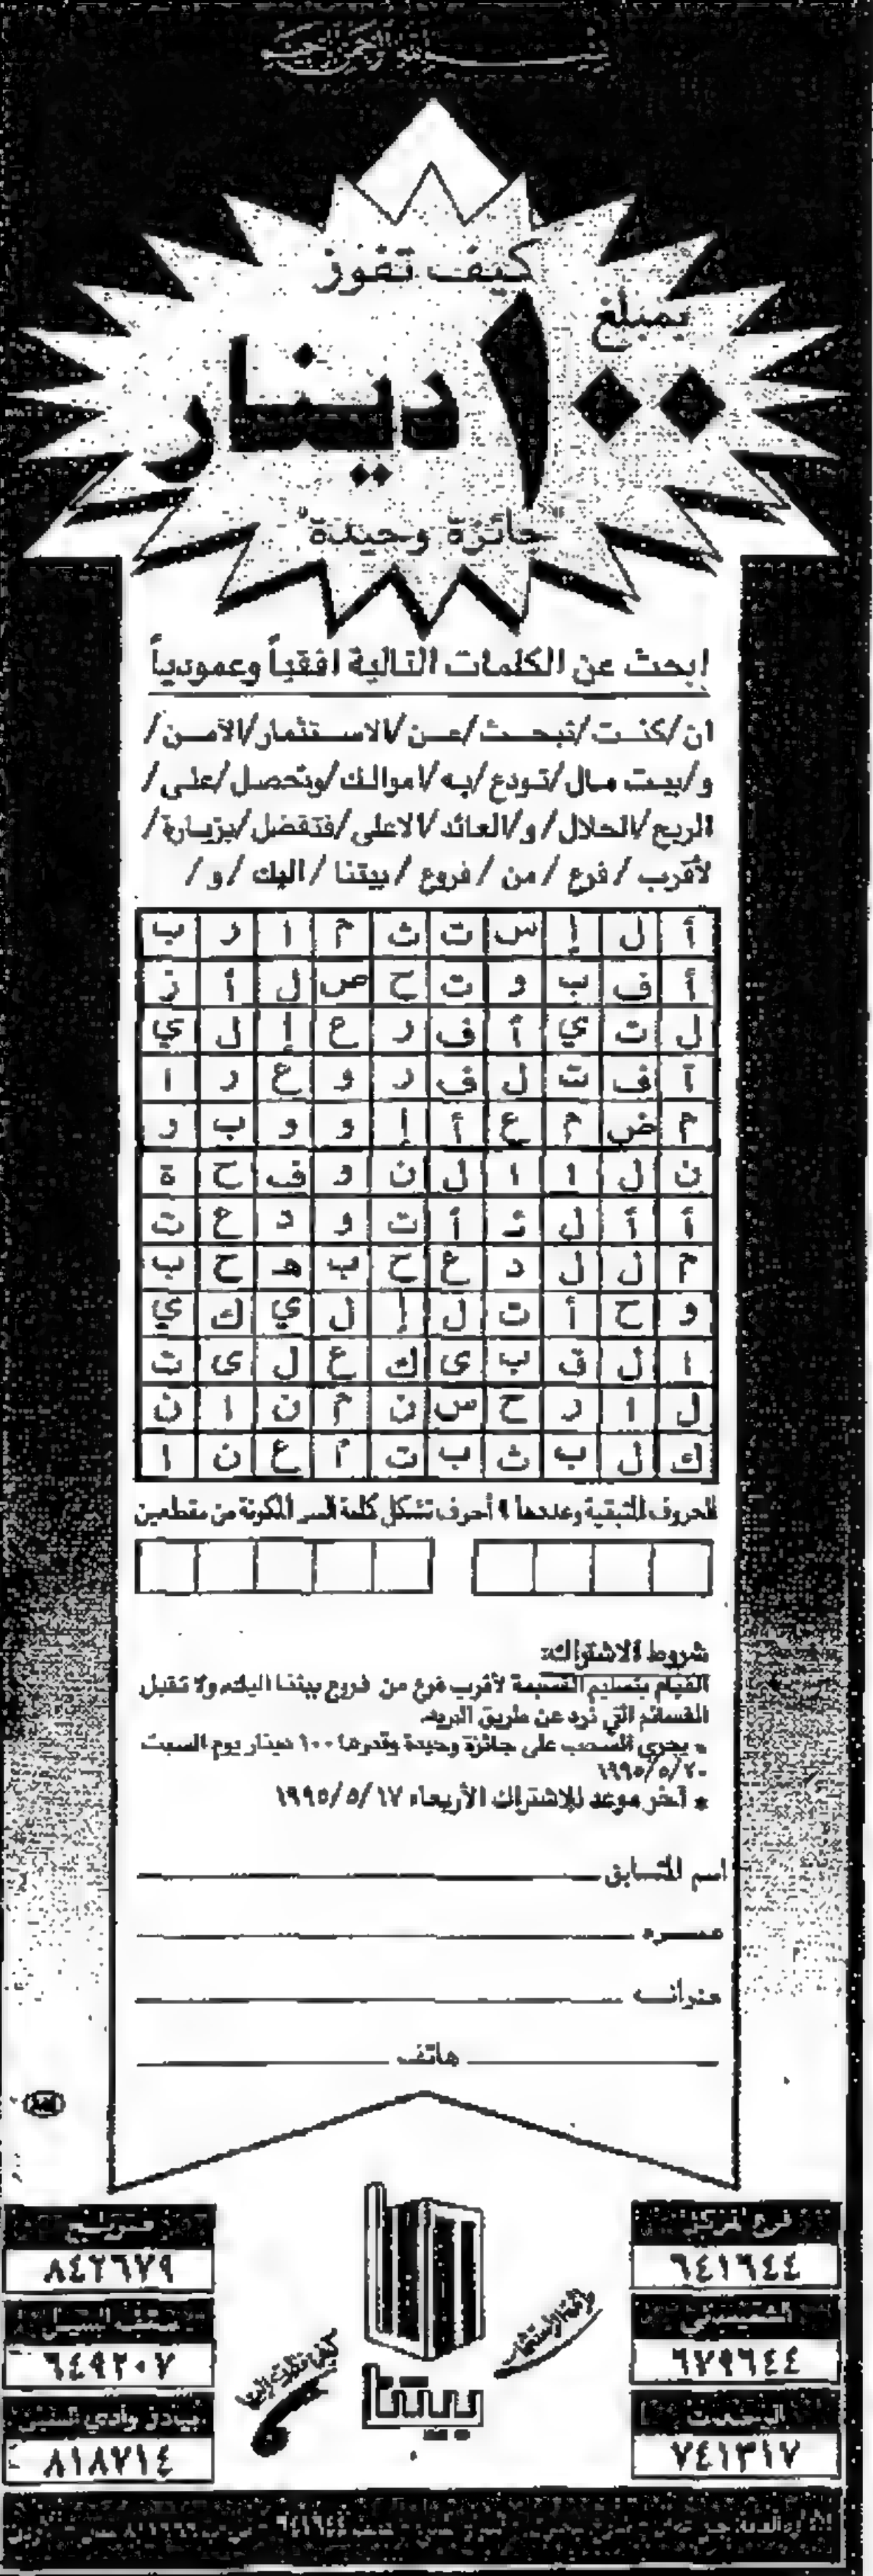 كيف تفوز
بمبلغ
١٠٠ دينار
"جائزة وحيدة"
ابحث عن الكلمات التالية افقياً وعمودياً
ان/كنت/تبحث/عن/الاستثمار/الآمن/
و/بيت مال/تودع/به/اموالك/وتحصل/على/
الربح/الحلال/و/العائد/الاعلى/فتفضل/بزيارة/
لأقرب/فرع/من/فروع/بيتنا/اليك/و/
أ ل إ س ت ث م ا ر ب
أ ف ب و ت ح ص ل أ ز
ل ت ي أ ف ر ع إ ل ي
آ ف ت ل ف ر و ع ر ا
م ض م ع أ إ و و ب ر
ن ل ا ا ل ن و ف ح ة
أ أ ل ئ أ ت و د ع ت
م ل ل د ع ح ب هـ ح ب
و ح أ ت ل إ ل ي ك ي
ا ل ق ب ى ك ع ل ى ت
ل ا ر ح س ن م ن ا ن
ك ل ب ث ب ت أ ع ن ا
الحروف المتبقية وعددها ٩ أحرف تشكل كلمة السر المكونة من مقطعين
شروط الاشتراك:
القيام بتسليم القسيمة لأقرب فرع من فروع بيتنا اليكم ولا تقبل
القسائم التي ترد عن طريق البريد.
* يجرى السحب على جائزة وحيدة وقدرها ١٠٠ دينار يوم السبت
١٩٩٥/٥/٢٠
* آخر موعد للاشتراك الأربعاء ١٩٩٥/٥/١٧
اسم المتسابق
عمره
عنوانه
هاتف
فرع المركز
٦٤١٦٤٤
٨٤٢٦٧٩
٦٧٩٦٤٤
٦٤٩٢٠٧
بيتنا
٧٤١٣١٧
٨١٨٧١٤